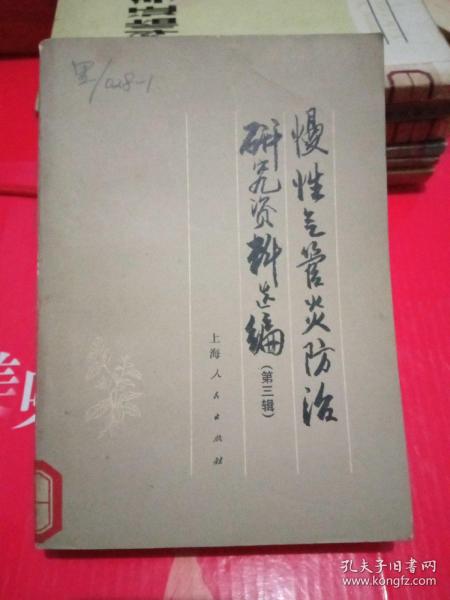 慢性气管炎防治
研究资料选编
(第三辑)
上海人民出版社
孔夫子旧书网
www.kongfz.com